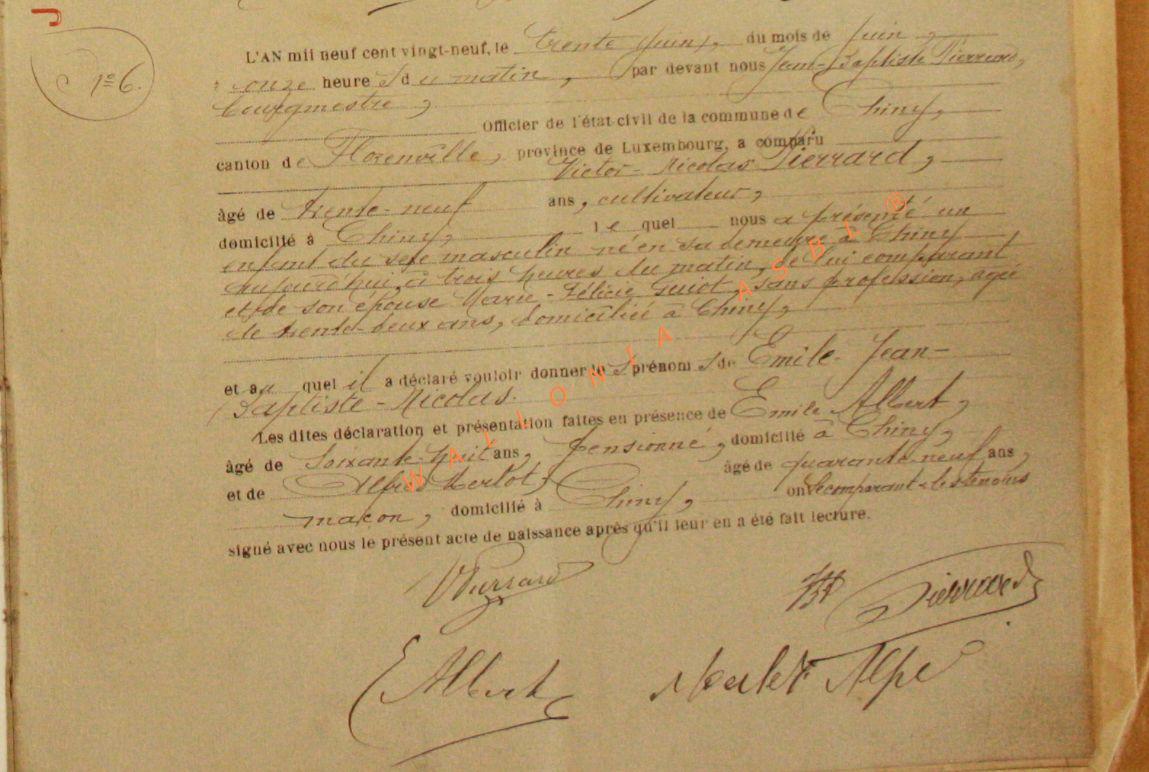 N° 6.
L'AN mil neuf cent vingt-neuf, le trente juin, du mois de juin,
à onze heure s du matin, par devant nous Jean-Baptiste Pierrard,
bourgmestre,
Officier de l'état-civil de la commune de Chiny,
canton de Florenville, province de Luxembourg, a comparu
Victor-Nicolas Pierrard,
âgé de trente-neuf ans, cultivateur,
domicilié à Chiny, le quel nous a présenté un
enfant du sexe masculin né en sa demeure à Chiny
aujourd'hui, à trois heures du matin, de lui comparant
et de son épouse Marie-Félicie Guiot, sans profession, âgée
de trente-deux ans, domiciliée à Chiny,
et au quel il a déclaré vouloir donner le s prénom s de Emile-Jean-
Baptiste-Nicolas.
Les dites déclaration et présentation faites en présence de Emile Albert,
âgé de soixante-huit ans, pensionné, domicilié à Chiny,
et de Alfred Merlot, âgé de quarante-neuf ans,
maçon, domicilié à Chiny, ont le comparant et les témoins
signé avec nous le présent acte de naissance après qu'il leur en a été fait lecture.
V Pierrard
JB Pierrard
E Albert
Merlot Alf
WALLONIA ASBL ®